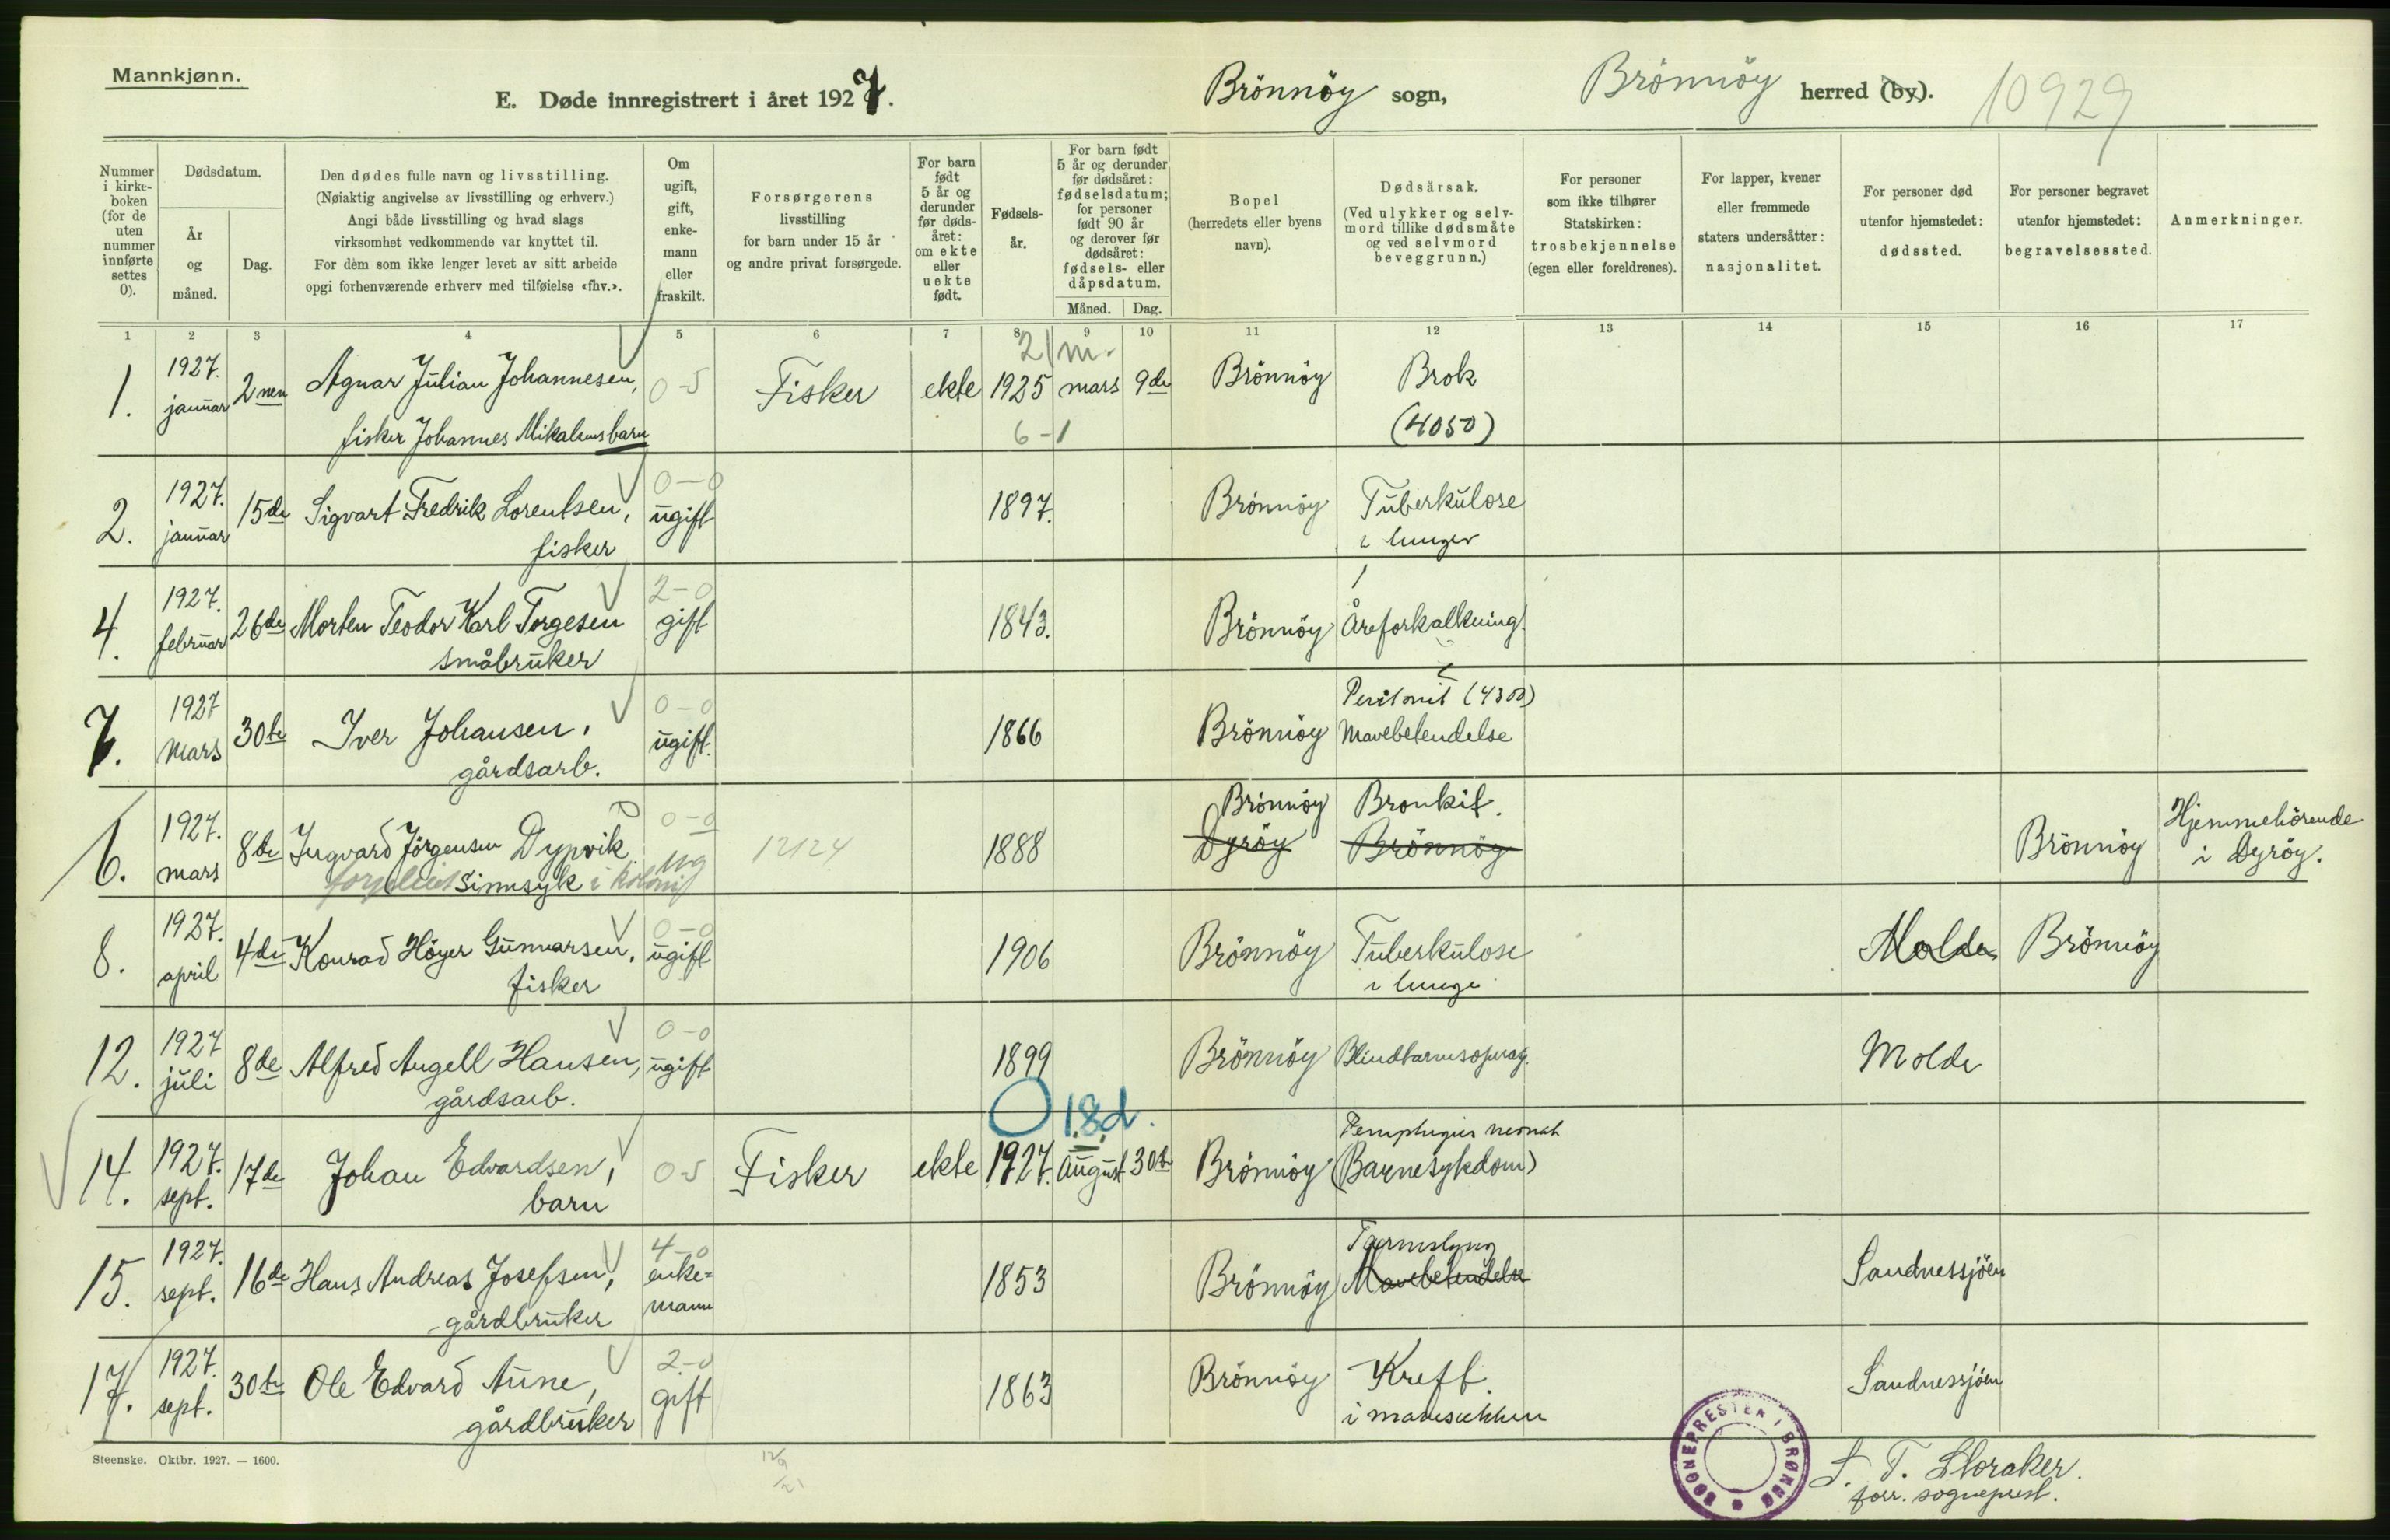 Mannkjønn.
E. Døde innregistrert i året 1927.
Brönnöy sogn,
Brönnöy herred (by).
10929
Nummer i kirke-boken (for de uten nummer innførte settes 0).
Dødsdatum.
År og måned.
Dag.
Den dødes fulle navn og livsstilling.
(Nøiaktig angivelse av livsstilling og erhverv.)
Angi både livsstilling og hvad slags
virksomhet vedkommende var knyttet til.
For dem som ikke lenger levet av sitt arbeide
opgi forhenværende erhverv med tilføielse «fhv.».
Om ugift, gift, enke-mann eller fraskilt.
Forsørgerens
livsstilling
for barn under 15 år
og andre privat forsørgede.
For barn født 5 år og derunder før døds-året: om ekte eller uekte født.
Fødsels-år.
For barn født 5 år og derunder før dødsåret: fødselsdatum; for personer født 90 år og derover før dødsåret: fødsels- eller dåpsdatum.
Måned.
Dag.
Bopel
(herredets eller byens
navn).
Dødsårsak.
(Ved ulykker og selv-
mord tillike dødsmåte
og ved selvmord
beveggrunn.)
For personer
som ikke tilhører
Statskirken:
trosbekjennelse
(egen eller foreldrenes).
For lapper, kvener
eller fremmede
staters undersåtter:
nasjonalitet.
For personer død
utenfor hjemstedet:
dødssted.
For personer begravet
utenfor hjemstedet:
begravelsessted.
Anmerkninger.
1 2 3 4 5 6 7 8 9 10 11 12 13 14 15 16 17
21 m.
1. 1927. januar 2nen Agnar Julian Johannesen, 0-5 Fisker ekte 1925 mars 9de Brönnöy Brok
fisker Johannes Mikalsens barn 6-1 (4050)
2. 1927. januar 15de Sigvart Fredrik Lorentsen, 0-0 ugift 1897. Brönnöy Tuberkulose
fisker i lunger
4. 1927. februar 26de Morten Teodor Karl Torgesen 2-0 gift 1843. Brönnöy Åreforkalkning.
småbruker
7. 1927 mars 30te Iver Johansen, 0-0 ugift. 1866 Brönnöy Peritonit (4300) Mavebetendelse
gårdsarb.
6. 1927. mars 8de Ingvard Jörgensen Dypvik 0-0 12124 1888 Brönnöy Dyröy Bronkit. Brönnöy Brönnöy Hjemmehörende i Dyröy.
forpleiet Sinnsyk i koloni ug
8. 1927. april 4de Konrad Höyer Gunnarsen, 0-0 ugift 1906 Brönnöy Tuberkulose Molde Brönnöy
fisker i lunge
12. 1927 juli 8de Alfred Angell Hansen, 0-0 ugift 1899 Brönnöy Blindtarmsoperasj. Molde
gårdsarb.
0 18 d.
14. 1927. sept. 17de Johan Edvardsen, 0-5 Fisker ekte 1927. August 30te Brönnöy Pemphigus neonat (Barnesykdom)
barn
15. 1927. sept. 16de Hans Andreas Josefsen, 4-0 enke-mann 1853 Brönnöy Tarmslyng Mavebetendelse Sandnessjöen
gårdbruker
17. 1927. sept. 30te Ole Edvard Aune, 2-0 gift 1863 Brönnöy Kreft Sandnessjöen
gårdbruker i mavesekken
Steenske. Oktbr. 1927. — 1600.
12/9 21
SOGNEPRESTEN I BRØNNØ
S. T. Storaker.
forr. sogneprest.